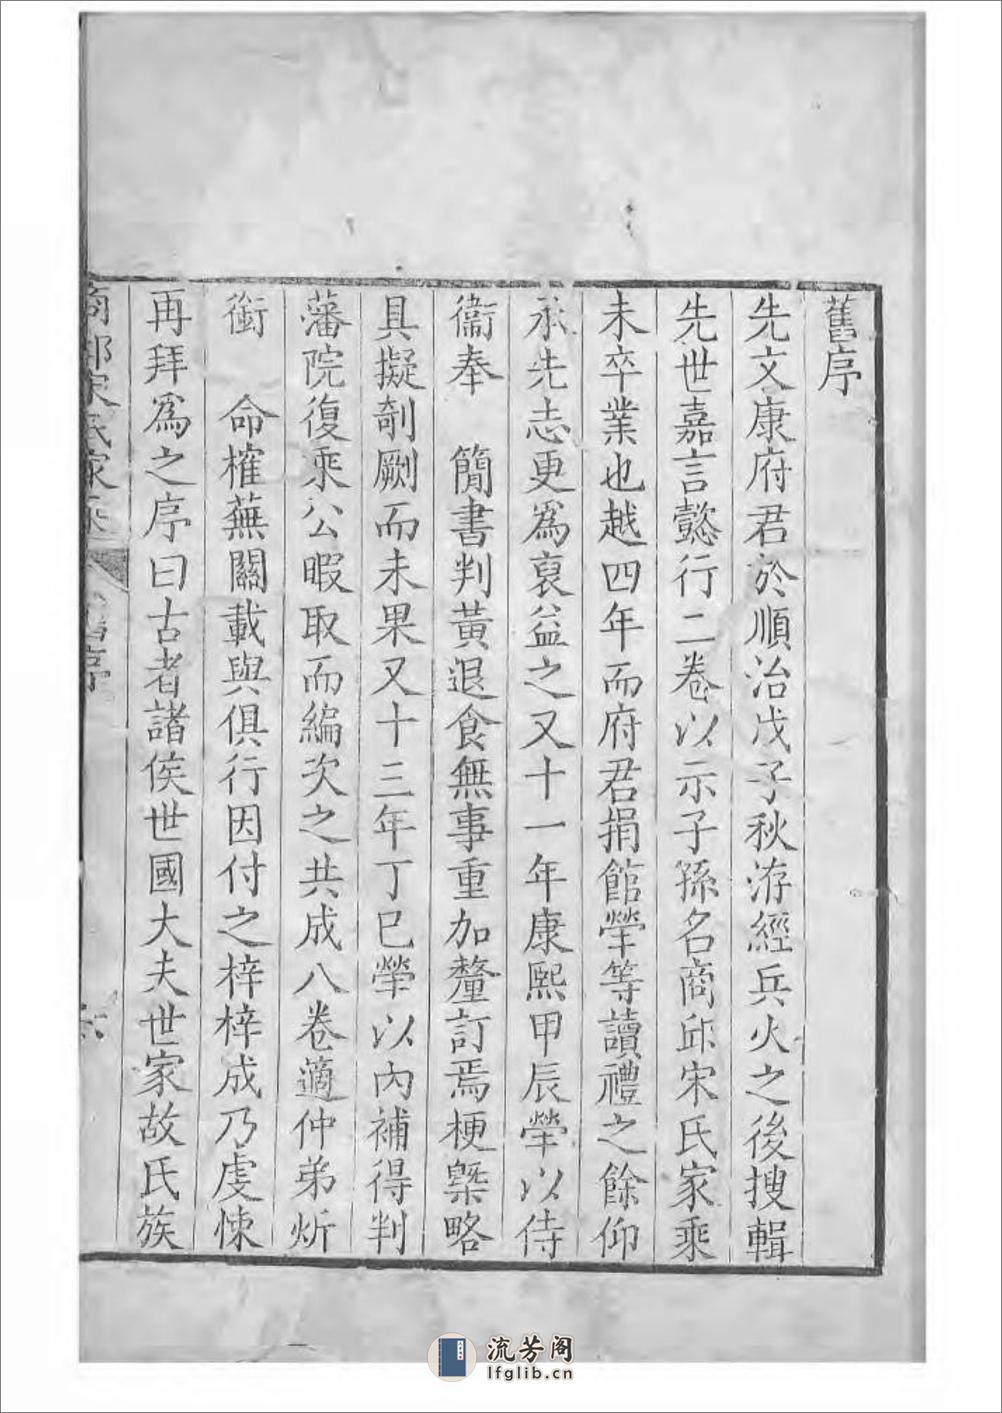 舊序
先文康府君於順治戊子秋洊經兵火之後搜輯
先世嘉言懿行二卷以示子孫名商邱宋氏家乘
未卒業也越四年而府君捐館犖等讀禮之餘仰
承先志更為裒益之又十一年康熙甲辰犖以侍
衞奉　簡書判黃退食無事重加釐訂焉梗槩略
具擬剞劂而未果又十三年丁巳犖以內補得判
藩院復乘公暇取而編次之共成八卷適仲弟炘
銜　命榷蕪關載與俱行因付之梓梓成乃虔悚
再拜為之序曰古者諸侯世國大夫世家故氏族
商邱宋氏家乘　舊序　六
流芳阁
lfglib.cn